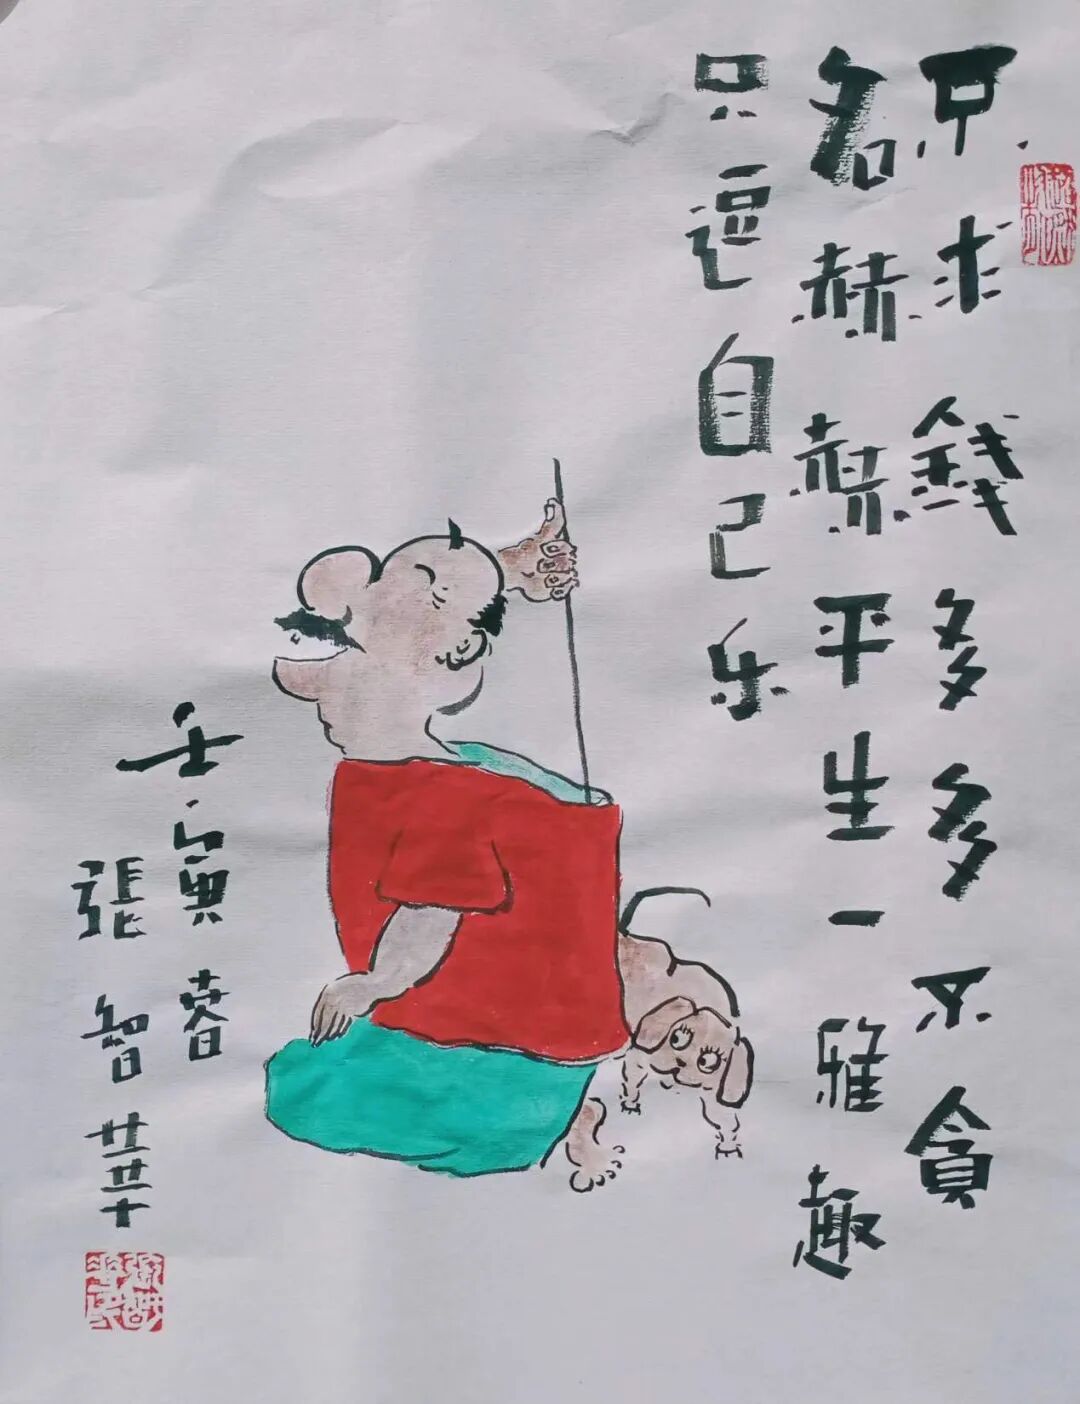 不求錢多多不貪
名赫赫平生一雅趣
只逗自己乐
壬寅春
張智華